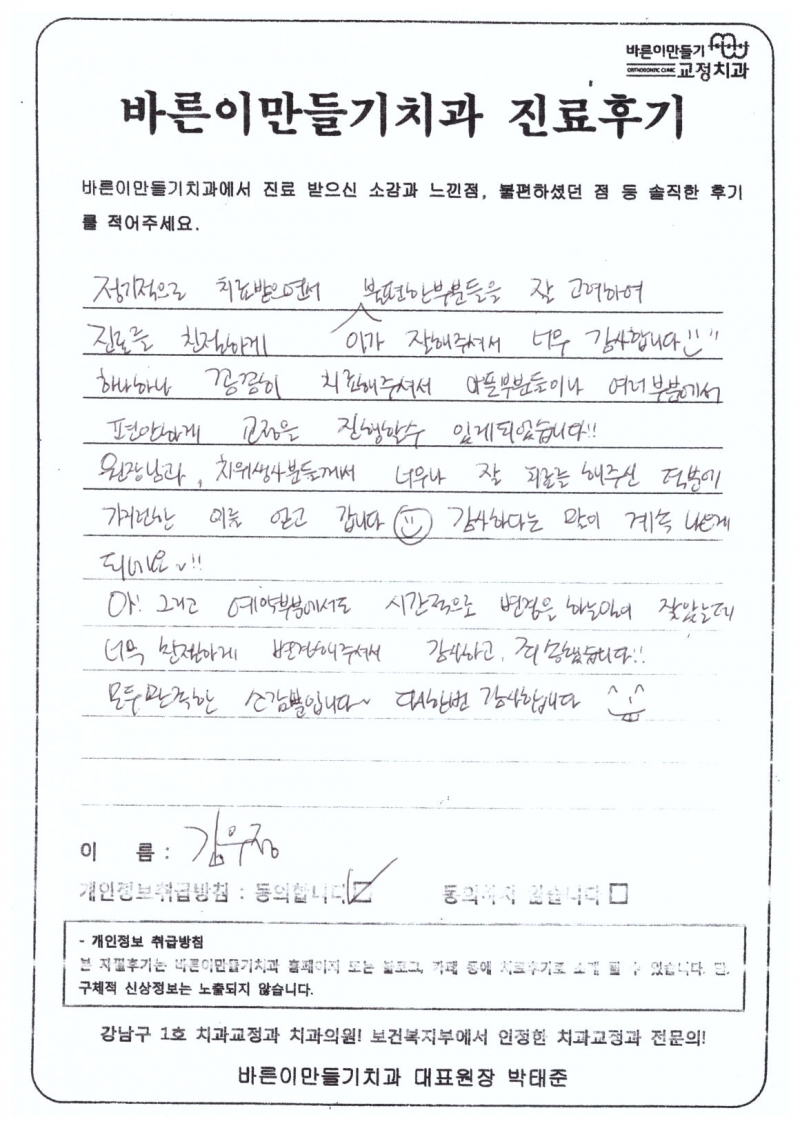 바른이만들기
ORTHODONTIC CLINIC 교정치과
바른이만들기치과 진료후기
바른이만들기치과에서 진료 받으신 소감과 느낀점, 불편하셨던 점 등 솔직한 후기
를 적어주세요.
정기적으로 치료받으면서 불편한부분들을 잘 고려하여
진료를 친절하게 잘해주셔서 너무 감사합니다!!
하나하나 꼼꼼히 치료해주셔서 아픈부분들이나 여러부분에서
편안하게 교정을 진행할수 있게되었습니다!!
원장님과, 치위생사분들께서 너무나 잘 해주신 덕분에
가지런한 이를 얻고 갑니다 감사하다는 말이 계속 나오게
되네요!!
아! 그리고 예약부분에서도 시간적으로 변경을 잦았는데
너무 친절하게 변경해주셔서 감사하고, 죄송했습니다!!
모두 만족한 소감뿐입니다~ 다시한번 감사합니다
이 름 : 김우정
개인정보취급방침 : 동의합니다 ☑ 동의하지 않습니다 □
- 개인정보 취급방침
본 자필후기는 바른이만들기치과 홈페이지 또는 블로그, 카페 등에 치료후기로 소개 될 수 있습니다. 단,
구체적 신상정보는 노출되지 않습니다.
강남구 1호 치과교정과 치과의원! 보건복지부에서 인정한 치과교정과 전문의!
바른이만들기치과 대표원장 박태준